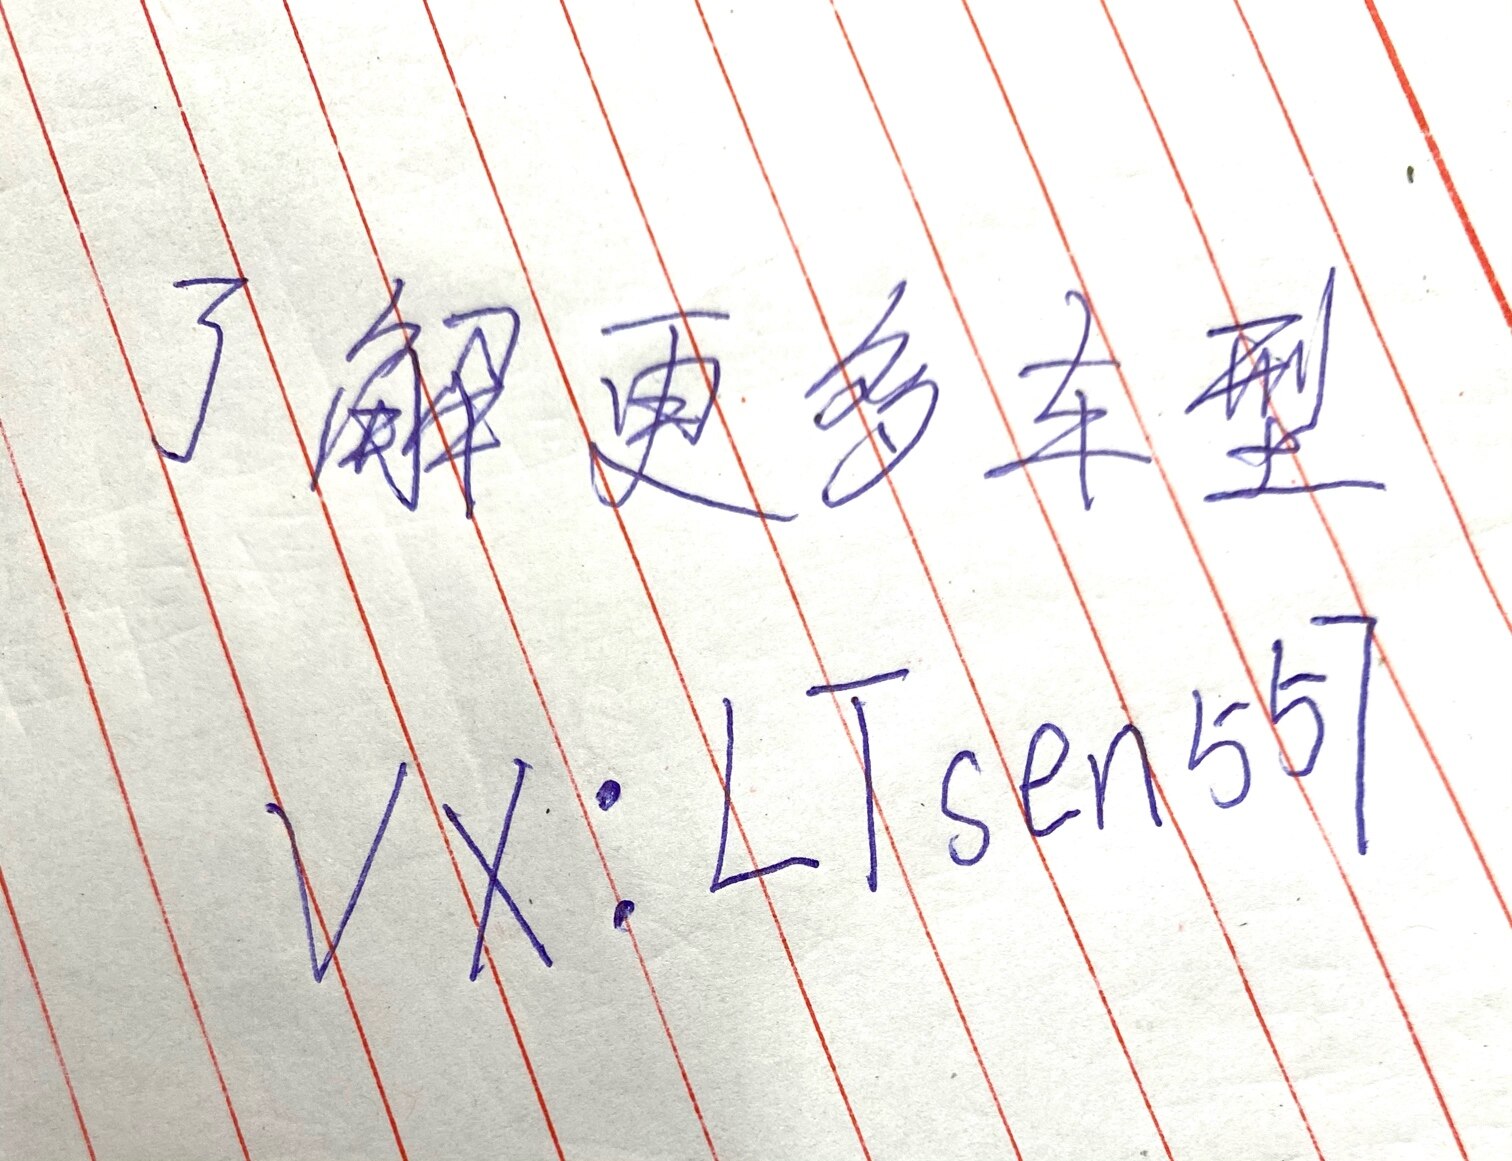 了解更多车型
VX:LTsen557